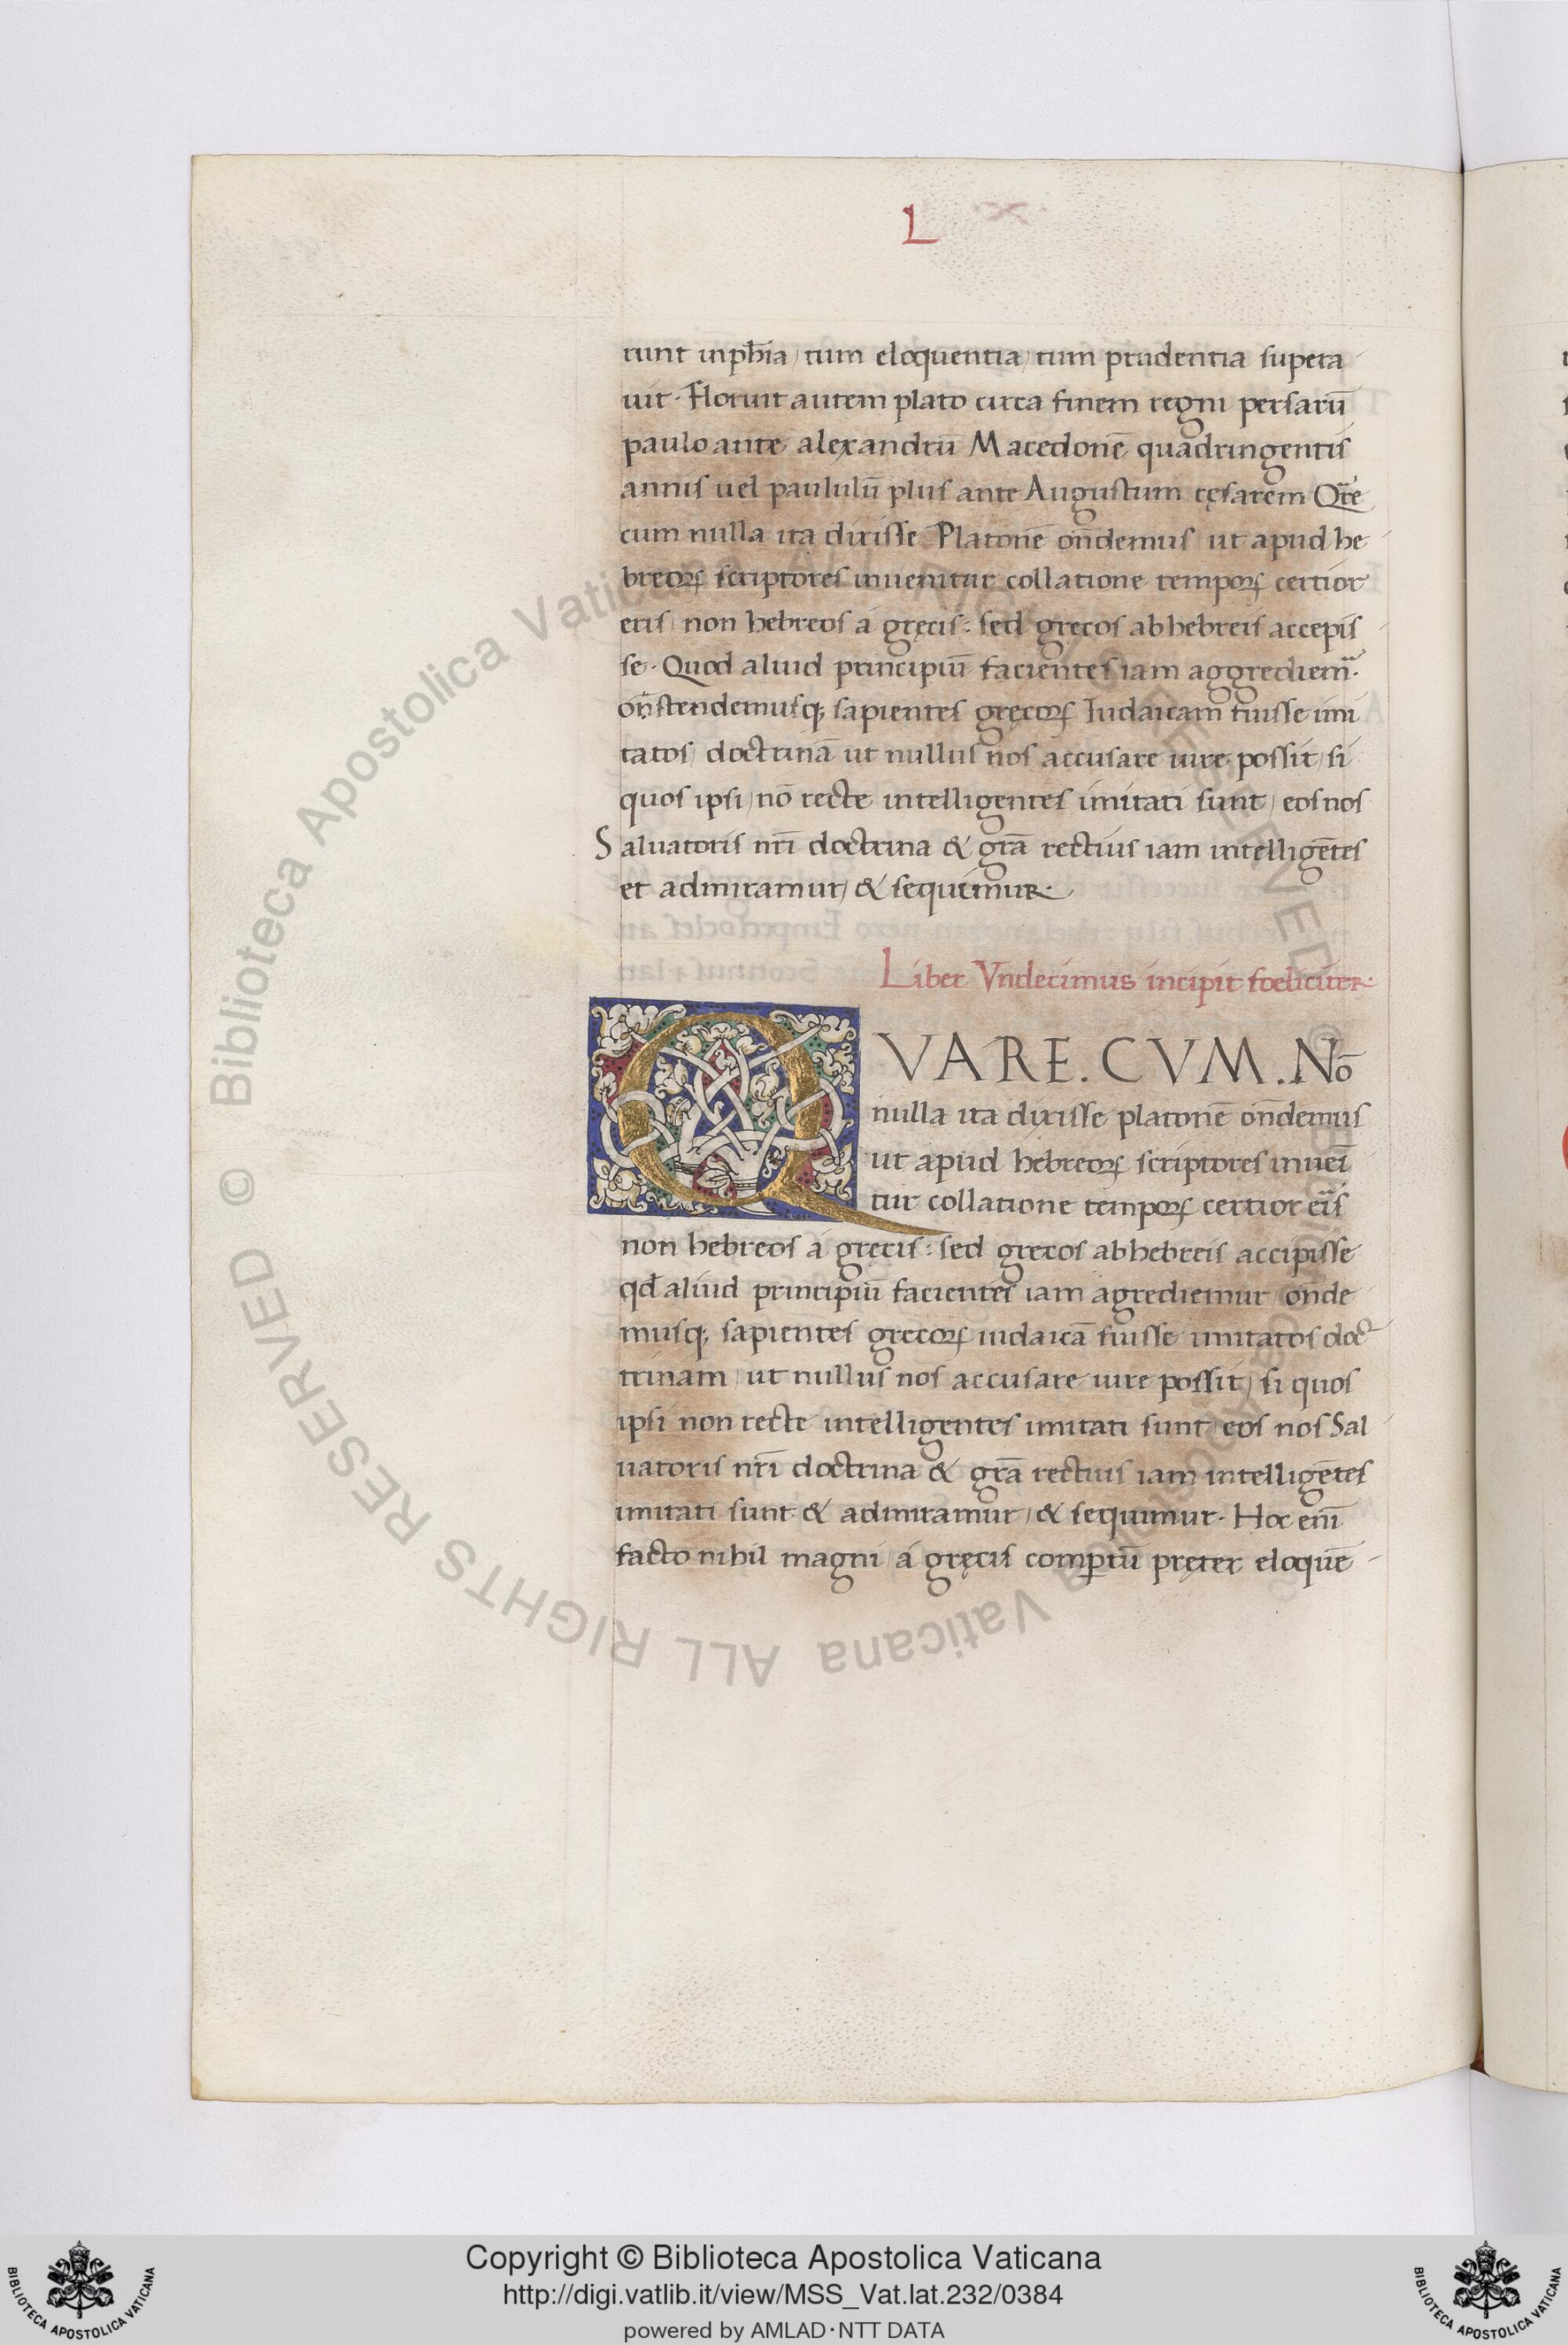 L
runt in ph̄ia / tum eloquentia / tum prudentia supera
uit. Floruit autem plato circa finem regni persarū
paulo ante alexandrū Macedonē quadringentis
annis uel paululū plus ante Augustum cęsarem Qr̄e
cum nulla ita dixisse Platonē on̄demus ut apud he
breoꝝ scriptores inuenitur collatione tempoꝝ certior
eris / non hebreos á gręcis: sed grecos ab hebreis accepis
se. Quod aliud principiū facientes iam aggrediem̄.
on̄stendemusq; sapientes gręcoꝝ Iudaicam fuisse imi
tatos / doctrinā ut nullus nos accusare iure possit / si
quos ipsi / nō recte intelligentes imitati sunt / eos nos
Saluatoris nr̄i doctrina & gr̄a rectius iam intelligētes
et admiramur / & sequimur.
Liber Vndecimus incipit foeliciter.
QVARE. CVM. Nō
nulla ita dixisse platonē on̄demus
ut apud hebreoꝝ scriptores inueī
tur collatione tempoꝝ certior er̄is
non hebreos á grecis: sed grecos ab hebreis accipisse
qd̄ aliud principiū facientes iam agrediemur / on̄de
musq; sapientes grecoꝝ iudaicā fuisse imitatos doc
trinam / ut nullus nos accusare iure possit / si quos
ipsi non recte intelligentes imitati sunt / eos nos Sal
uatoris nr̄i doctrina & gr̄a rectius iam intelligētes
imitati sunt & admiramur / & sequimur. Hoc enī
facto nihil magni á gręcis comꝑtū pręter eloquē
© Biblioteca Apostolica Vaticana ALL RIGHTS RESERVED © Biblioteca Apostolica Vaticana ALL RIGHTS RESERVED
BIBLIOTECA APOSTOLICA VATICANA
Copyright © Biblioteca Apostolica Vaticana
http://digi.vatlib.it/view/MSS_Vat.lat.232/0384
powered by AMLAD·NTT DATA
BIBLIOTECA APOSTOLICA VATICANA